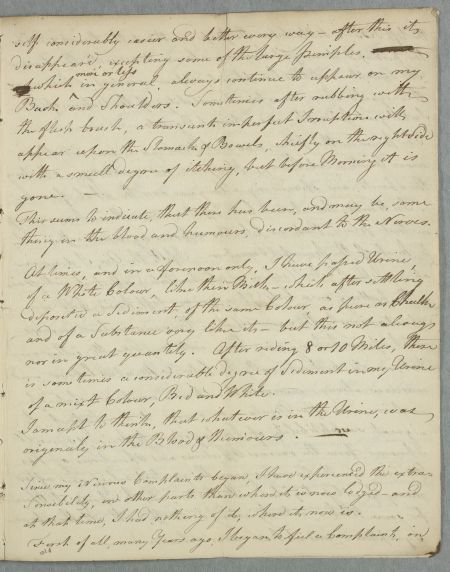 self considerably easier and better every way – after this it
disappears, excepting some of the large pimples.
which in general, more or less always continue to appear on my
Back and Shoulders. Sometimes after rubbing with
the flesh brush, a transient imperfect Irruption will
appear upon the Stomach & Bowels, chiefly on the right side
with a small degree of itching, but before Morning it is
gone. –
This seems to indicate, that there has been, and may be, some
thing in the blood and humours, discordant to the Nerves.
At times, and in a forenoon only, I have passed Urine
of a White Colour, like thin Milk – which after settling
deposited a Sediment, of the same Colour, as pure as Chalk
and of a Substance very like it – but this not always
nor in great quantity. After riding 8 or 10 Miles, there
is sometimes a considerable degree of Sediment in my Urine
of a mixt Colour, Red and White.
I am apt to think, that whatever is in the Urine, was
originally in the Blood & Humours.
Since my Nervous Complaints began, I have experienced the extra
Sensibility, in other parts than where it is now lodged – and
at that time, I had nothing of it, where it now is.
First of all, many Years ago, I began to feel a Complaint, in